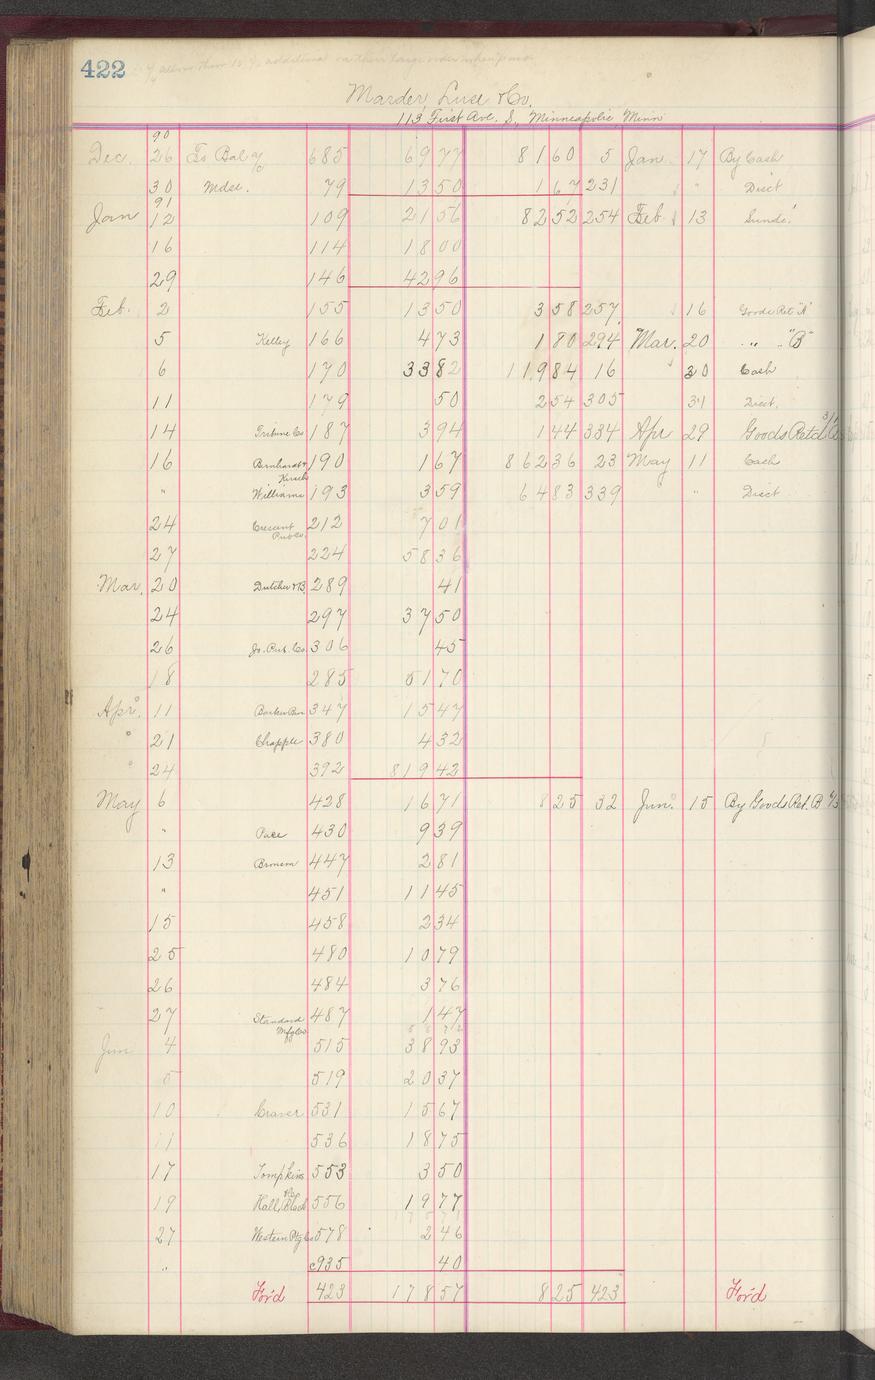 422
Marder, Luse & Co.
113 First Ave. S., Minneapolis, Minn
90
Dec. 26 To Bal % 685 69 77 81 60 5 Jan. 17 By Cash
30 Mdse. 79 13 50 1 67 231 " Disct
91
Jan 12 109 21 56 82 52 254 Feb. 13 Sunds.
16 114 18 00
29 146 42 96
Feb. 2 155 13 50 3 58 257 16 Goods Ret "A"
5 Kelley 166 4 73 1 80 294 Mar. 20 " " "B"
6 170 33 82 119 84 16 30 Cash
11 179 50 2 54 305 31 Disct.
14 Tribune Co 187 3 94 1 44 334 Apr 29 Goods Retd
16 Bernhardt & 190 1 67 862 36 23 May 11 Cash
Kirsch
" Williams 193 3 59 64 83 339 " Disct
24 Crescent 212 7 01
Pub Co.
27 224 58 36
Mar. 20 Dutcher & B. 289 41
24 297 37 50
26 Jo. Pub. Co. 306 45
18 285 51 70
Apr. 11 347 15 47
" 21 Chapple 380 4 32
" 24 392 819 42
May 6 428 16 71 8 25 32 Jun. 15 By Goods Ret. B
" Pace 430 9 39
13 447 2 81
" 451 11 45
15 458 2 34
25 480 10 79
26 484 3 76
27 Standard 487 1 47
Mfg Co
Jun 4 515 38 93
5 519 20 37
10 Craver 531 15 67
11 536 18 75
17 Tompkins 553 3 50
19 Hall 556 19 77
27 Western Ptg Co 578 2 46
" c935 40
For'd 423 178 57 8 25 423 For'd